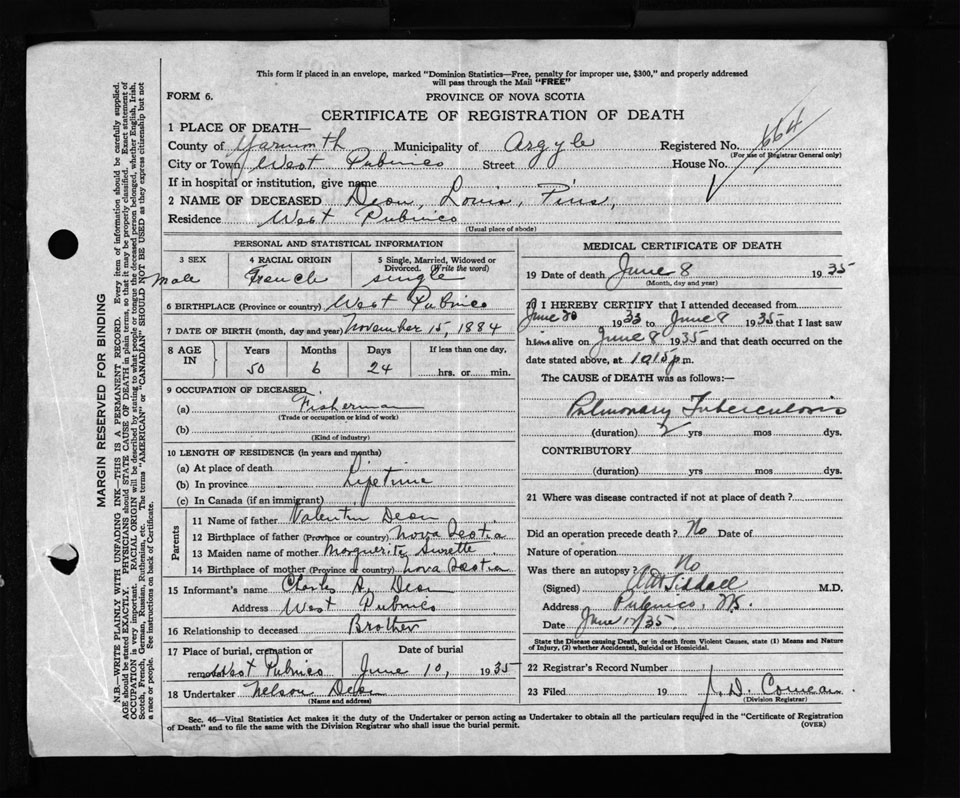 This form if placed in an envelope, marked "Dominion Statistics—Free, penalty for improper use, $300," and properly addressed
will pass through the Mail "FREE"
FORM 6.
PROVINCE OF NOVA SCOTIA
CERTIFICATE OF REGISTRATION OF DEATH
1 PLACE OF DEATH—
County of Yarmouth Municipality of Argyle Registered No. 664
(For use of Registrar General only)
City or Town West Pubnico Street House No.
If in hospital or institution, give name
2 NAME OF DECEASED Deon, Louis, Pius,
Residence West Pubnico
(Usual place of abode)
PERSONAL AND STATISTICAL INFORMATION
3 SEX Male
4 RACIAL ORIGIN French
5 Single, Married, Widowed or Divorced. (Write the word) single
6 BIRTHPLACE (Province or country) West Pubnico
7 DATE OF BIRTH (month, day and year) November 15, 1884
8 AGE IN Years Months Days If less than one day,
50 6 24 hrs. or min.
9 OCCUPATION OF DECEASED
(a) Fisherman
(Trade or occupation or kind of work)
(b)
(Kind of industry)
10 LENGTH OF RESIDENCE (in years and months)
(a) At place of death
(b) In province Lifetime
(c) In Canada (if an immigrant)
Parents
11 Name of father Valentin Deon
12 Birthplace of father (Province or country) Nova Scotia
13 Maiden name of mother Marguerite Surette
14 Birthplace of mother Nova Scotia
15 Informant's name Charles A. Deon
Address West Pubnico
16 Relationship to deceased Brother
17 Place of burial, cremation or removal West Pubnico
Date of burial June 10, 1935
18 Undertaker Nelson Deon
(Name and address)
MEDICAL CERTIFICATE OF DEATH
19 Date of death June 8 1935
(Month, day and year)
20 I HEREBY CERTIFY that I attended deceased from
June 20 1933 to June 8 1935 that I last saw
him alive on June 8 1935 and that death occurred on the
date stated above, at 10.15 p.m.
The CAUSE of DEATH was as follows:—
Pulmonary Tuberculosis
(duration) 2 yrs mos dys.
CONTRIBUTORY
(duration) yrs mos dys.
21 Where was disease contracted if not at place of death?
Did an operation precede death? No Date of
Nature of operation
Was there an autopsy? No
(Signed) Siddall M.D.
Address Pubnico, N.S.
Date June 12/35
State the Disease causing Death, or in death from Violent Causes, state (1) Means and Nature
of Injury, (2) whether Accidental, Suicidal or Homicidal.
22 Registrar's Record Number
23 Filed 19 J. D. Comeau
(Division Registrar)
Sec. 46—Vital Statistics Act makes it the duty of the Undertaker or person acting as Undertaker to obtain all the particulars required in the "Certificate of Registration
of Death" and to file the same with the Division Registrar who shall issue the burial permit. (OVER)
MARGIN RESERVED FOR BINDING
N.B.—WRITE PLAINLY WITH UNFADING INK—THIS IS A PERMANENT RECORD. Every item of information should be carefully supplied.
AGE should be stated EXACTLY. PHYSICIANS should STATE CAUSE OF DEATH in plain terms, so that it may be properly classified. Exact statement of
OCCUPATION is very important. RACIAL ORIGIN will be described by stating to what people or tongue the deceased person belonged, whether English, Irish,
Scotch, French, German, Russian, Ruthenian, etc. The terms "AMERICAN" or "CANADIAN" SHOULD NOT BE USED as they express citizenship but not
a race or people. See instructions on back of Certificate.